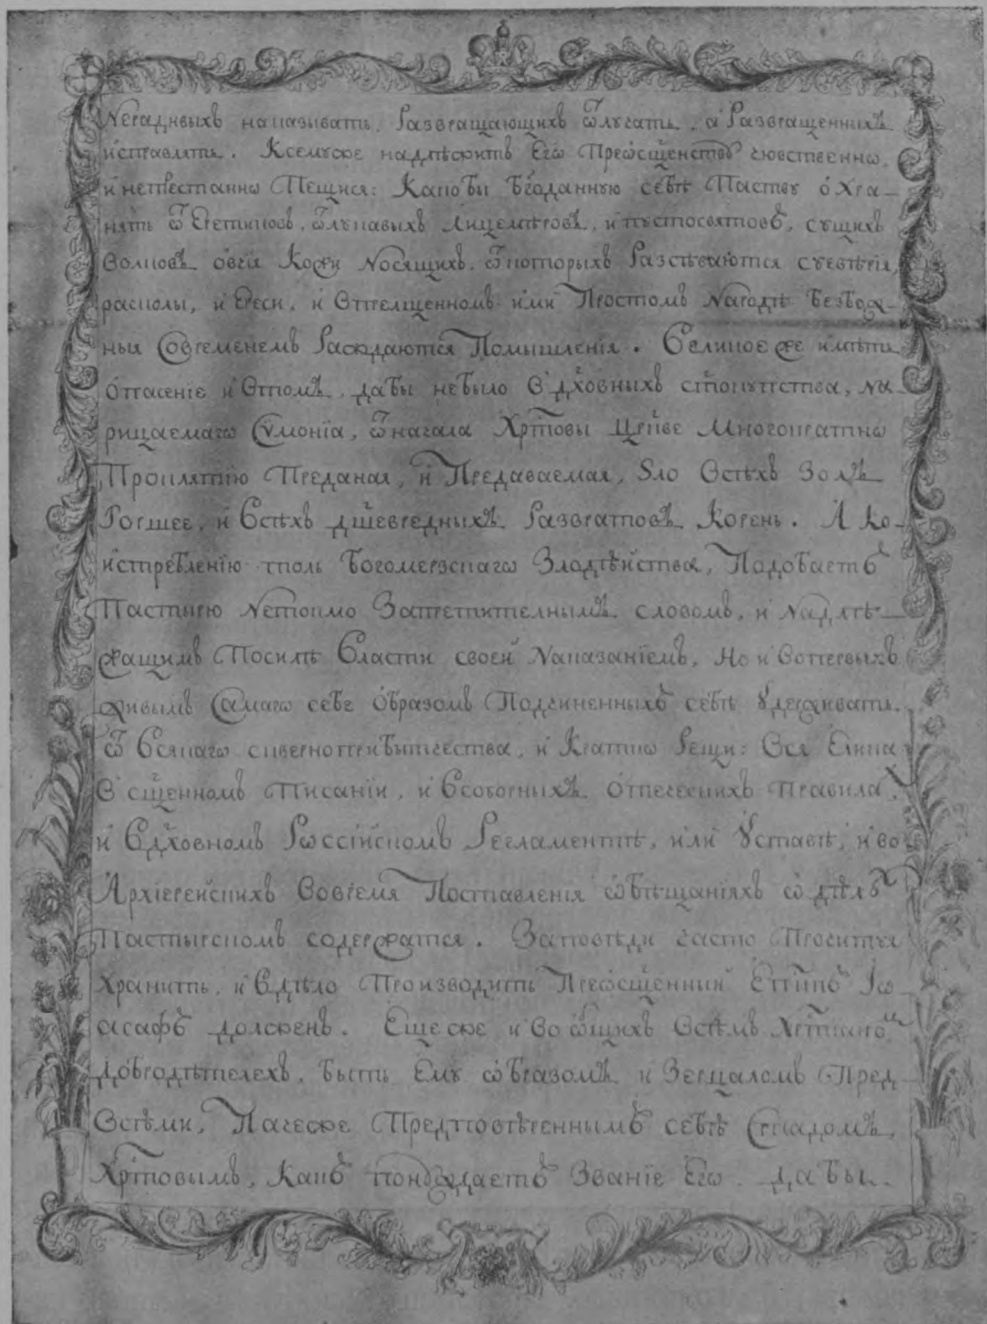 Нерадивыхъ наказывать, Развращающихъ ѿлучать, а Развращенныхъ
исправлять. Ксемуже надлѣжитъ Его Преѡсщенство
и непрестаннѡ Пещися: Какобы Бгоданную себѣ Паству о҆Хра-
нять ѿ Еретиковъ, ѿлукавыхъ Лицемѣровъ, и пустосвятовъ, сущихъ
Волковъ овчія Кожи Носящихъ, ѿкоторыхъ Разсѣваются суевѣрія,
расколы, и Ереси, и Впрелщенномъ ими Простомъ Народѣ Безбож-
ныя Современемъ Раждаются Помышленія. Великое же имѣти
Опасеніе и Втомъ, дабы небыло Вдх҃овныхъ ст҃окупства, На
рицаемагѡ Сѵмонія, ѿначала Хрт҃овы Цр҃кве Многократнѡ
Проклятію Преданая, и Предаваемая, Ѕло Всѣхъ Золъ
Горшее, и Всѣхъ дш҃евредныхъ Развратовъ Корень. А Ко
истребленію толь Богомерзскагѡ Злодѣйства, Подобаетъ
Пастырю Нетокмо Запретителнымъ словомъ, и Надлѣ-
жащимъ Посилѣ Власти своей Наказаніемъ, Но и Вопервыхъ
живымъ Самагѡ себе Образомъ Подчиненныхъ себѣ Удерживать
ѿ Всякагѡ скверноприбытчества, и Краткѡ Рещи: Вся Елика
В сщ҃енномъ Писаніи, и Всоборныхъ Отеческихъ Правила,
и Вдх҃овномъ Рѡссійскомъ Регламентѣ, или Уставѣ, и во
Архіерейскихъ Вовремя Поставленія ѡбѣщаніяхъ ѡ дѣлѣ
Пастырскомъ содержатся. Заповѣди часто Прочитуя
Хранить, и Вдѣло Производить Преѡсщенный Епп҃ъ Іѡ
асафъ долженъ. Еще же и Во ѡбщихъ Всѣмъ Хрт҃іаномъ
Добродѣтелехъ, быть Ему ѡбразомъ и Зерцаломъ Пред
Всѣми, Пачеже Предповѣреннымъ себѣ Стадомъ
Хрт҃овымъ, Какъ понуждаетъ Званіе Его. дабы